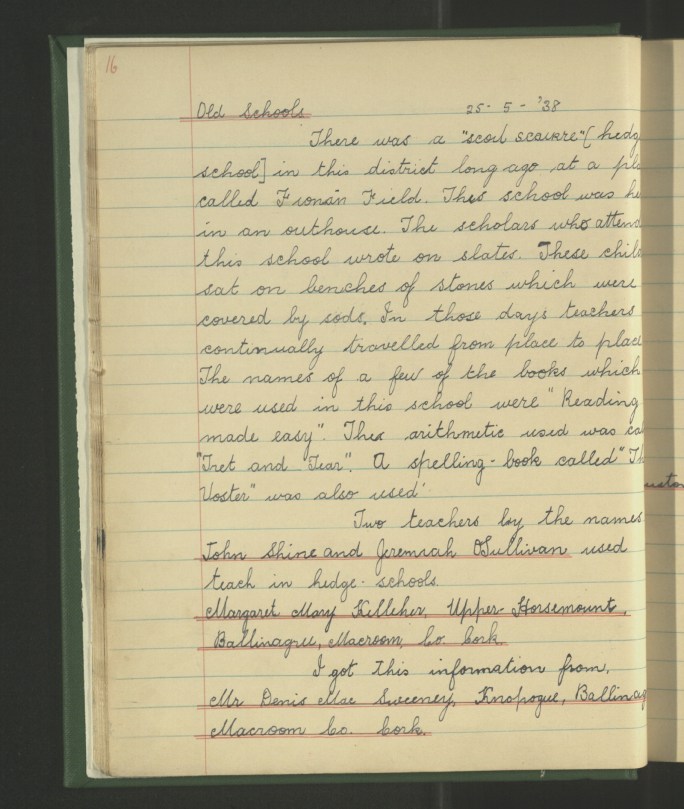 16
Old Schools 25-5-'38
There was a "scoil scairte" [hedg
school] in this district long ago at a pl
called Fionán Field. This school was he
in an outhouse. The scholars who attend
this school wrote on slates. These chil
sat on benches of stones which were
covered by sods. In those days teachers
continually travelled from place to plac
The names of a few of the books which
were used in this school were "Reading
made easy". The arithmetic used was ca
"Tret and Tear". A spelling-book called "Th
Voster" was also used.
Two teachers by the names
John Shine and Jeremiah O'Sullivan used
teach in hedge-schools.
Margaret Mary Kelleher, Upper-Horsemount,
Ballinagree, Macroom, Co. Cork.
I got this information from,
Mr Denis Mac Sweeney, Knopogue, Ballinag
Macroom Co. Cork.